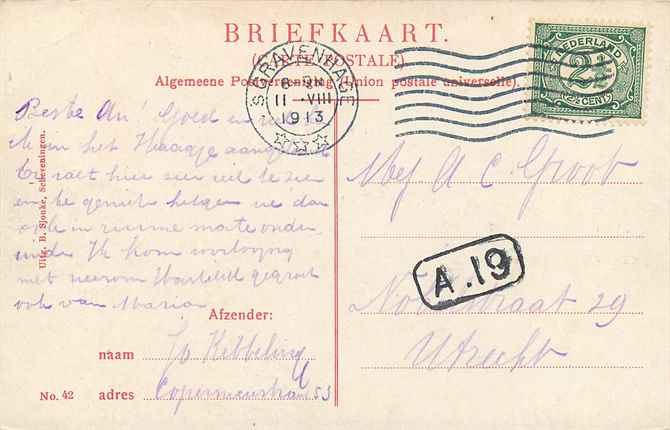 BRIEFKAART.
(CARTE POSTALE).
Algemeene Postvereeniging (Union postale universelle).
'S GRAVENHAGE
8-9N
11-VIII
1913
NEDERLAND
2½
2½ CENT
Beste An! Goed en wel
M in het Haagje
Er valt hier zeer veel te zien
en we genieten we dan
ook in ruime mate onder
Ik kom voorloopig
niet weerom Hartelijk gegroet
ook van Maria
Uitg. B. Sjouke, Scheveningen.
Mej A C Groot
A.19
straat 29
Utrecht
Afzender:
naam Jo Kibbeling
No. 42 adres Copernicusstraat 53